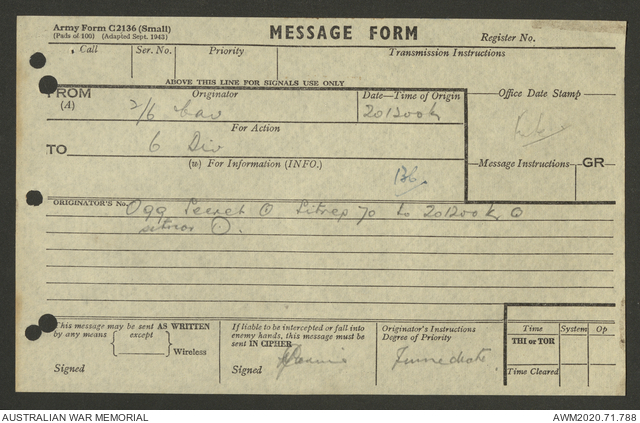 Army Form C2136 (Small)
(Pads of 100) (Adapted Sept. 1943)
MESSAGE FORM
Register No.
Call
Ser. No.
Priority
Transmission Instructions
ABOVE THIS LINE FOR SIGNALS USE ONLY
FROM
(A)
Originator
Date—Time of Origin
Office Date Stamp
2/6 Cav
201200k
For Action
TO
6 Div
(W) For Information (INFO.)
Message Instructions
GR
ORIGINATOR'S No.
O99 Secret ⊙ Sitrep 70 to 201200k ⊙
sitnor ⊙.
This message may be sent AS WRITTEN
by any means
except
Wireless
Signed
If liable to be intercepted or fall into
enemy hands, this message must be
sent IN CIPHER
Signed
Originator's Instructions
Degree of Priority
Immediate
Time
System
Op
THI or TOR
Time Cleared
AUSTRALIAN WAR MEMORIAL
AWM2020.71.788